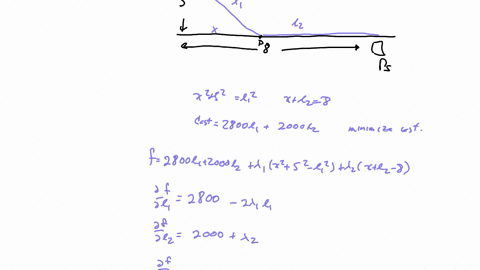 5
l₁
l₂
x
8
Ps
x²+5² = l₁² x+l₂=8
Cost = 2800l₁ + 2000l₂ minimize cost.
f = 2800l₁+2000l₂ + λ₁(x²+5²-l₁²)+λ₂(x+l₂-8)
∂f/∂l₁ = 2800 - 2λ₁l₁
∂f/∂l₂ = 2000 + λ₂
∂f